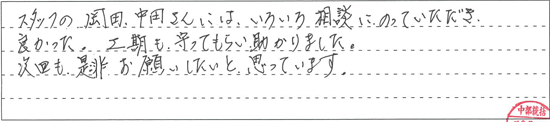 スタッフの岡田、中田さんには、いろいろ相談にのっていただき
良かった。工期も守ってもらい助かりました。
次回も是非お願いしたいと思っています。
中部統括